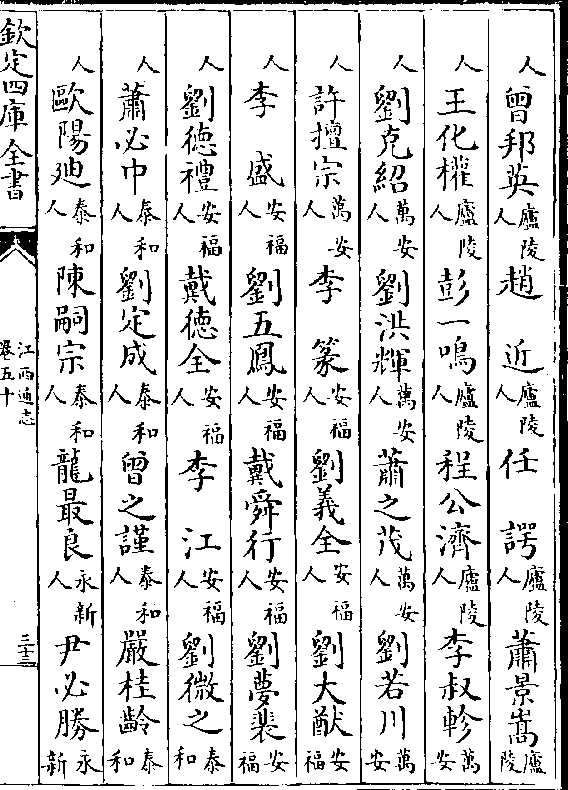 人曾邦英廬陵人趙近廬陵人任諤廬陵人蕭景嵩廬陵
人王化權廬陵人彭一鳴廬陵人程公濟廬陵人李叔軫萬安
人劉克紹萬安人劉洪輝萬安人蕭之茂萬安人劉若川萬安
人許擅宗萬安人李篆安福人劉義全安福人劉大猷安福
人李盛安福人劉五鳳安福人戴舜行安福人劉夢裴安福
人劉德禮安福人戴德全安福人李江安福人劉微之泰和
人蕭必中泰和人劉定成泰和人曾之謹泰和人嚴桂齡泰和
人歐陽廸泰和人陳嗣宗泰和人龍最良永新人尹必勝永新
欽定四庫全書
江西通志
卷五十
三十三